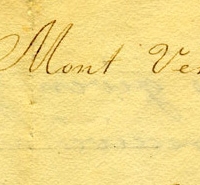 Mont Ve